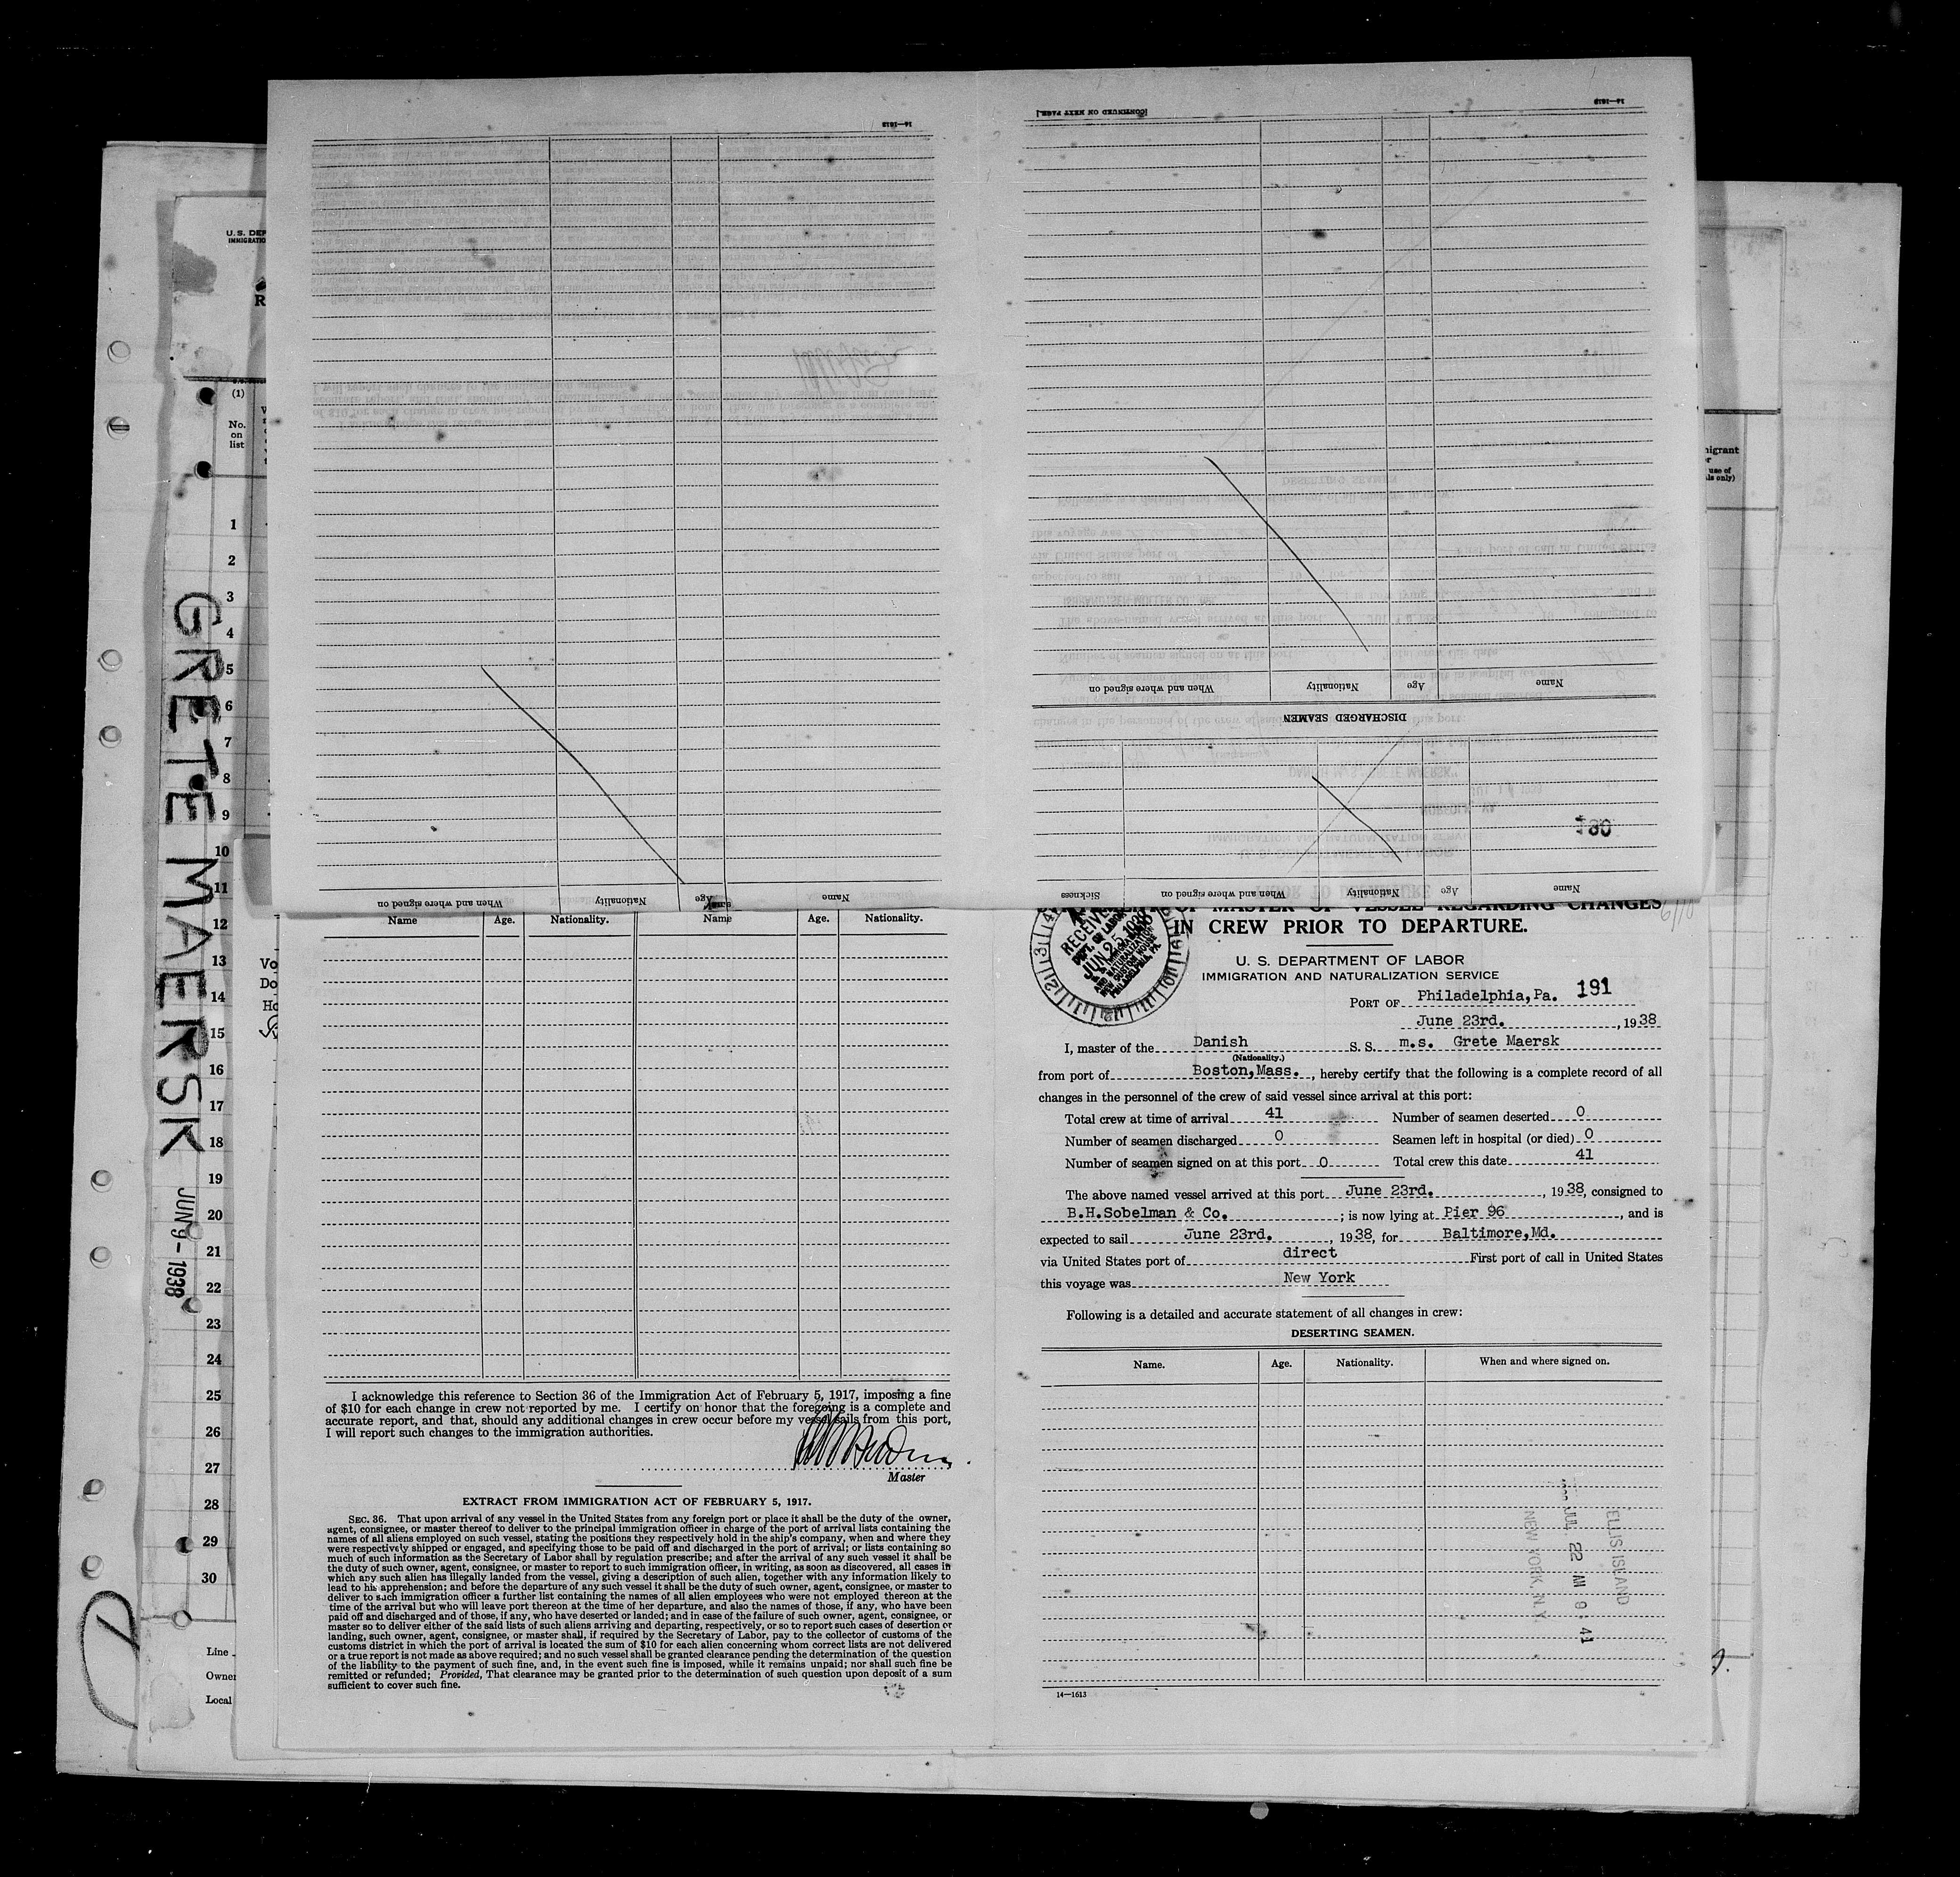 14—1613
14—1613
[CONTINUED ON NEXT PAGE.]
Name Age Nationality When and where signed on
DISCHARGED SEAMEN
Name Age Nationality When and where signed on
180
Name Age Nationality When and where signed on Sickness
U. S. DEP
IMMIGRATIO
R
(1)
No.
on
list
1
2
3
4
5
6
7
8
9
10
11
12
13
14
15
16
17
18
19
20
21
22
23
24
25
26
27
28
29
30
Line
Owner
Local
GRETE MAERSK
JUN 9 - 1938
Vo
Do
Ho
migrant
r
use of
ls only)
Name Age. Nationality. Name Age. Nationality.
I acknowledge this reference to Section 36 of the Immigration Act of February 5, 1917, imposing a fine
of $10 for each change in crew not reported by me. I certify on honor that the foregoing is a complete and
accurate report, and that, should any additional changes in crew occur before my vessel sails from this port,
I will report such changes to the immigration authorities.
Master
EXTRACT FROM IMMIGRATION ACT OF FEBRUARY 5, 1917.
SEC. 36. That upon arrival of any vessel in the United States from any foreign port or place it shall be the duty of the owner,
agent, consignee, or master thereof to deliver to the principal immigration officer in charge of the port of arrival lists containing the
names of all aliens employed on such vessel, stating the positions they respectively hold in the ship's company, when and where they
were respectively shipped or engaged, and specifying those to be paid off and discharged in the port of arrival; or lists containing so
much of such information as the Secretary of Labor shall by regulation prescribe; and after the arrival of any such vessel it shall be
the duty of such owner, agent, consignee, or master to report to such immigration officer, in writing, as soon as discovered, all cases in
which any such alien has illegally landed from the vessel, giving a description of such alien, together with any information likely to
lead to his apprehension; and before the departure of any such vessel it shall be the duty of such owner, agent, consignee, or master to
deliver to such immigration officer a further list containing the names of all alien employees who were not employed thereon at the
time of the arrival but who will leave port thereon at the time of her departure, and also the names of those, if any, who have been
paid off and discharged and of those, if any, who have deserted or landed; and in case of the failure of such owner, agent, consignee, or
master so to deliver either of the said lists of such aliens arriving and departing, respectively, or so to report such cases of desertion or
landing, such owner, agent, consignee, or master shall, if required by the Secretary of Labor, pay to the collector of customs of the
customs district in which the port of arrival is located the sum of $10 for each alien concerning whom correct lists are not delivered
or a true report is not made as above required; and no such vessel shall be granted clearance pending the determination of the question
of the liability to the payment of such fine, and, in the event such fine is imposed, while it remains unpaid; nor shall such fine be
remitted or refunded; Provided, That clearance may be granted prior to the determination of such question upon deposit of a sum
sufficient to cover such fine.
OF MASTER OF VESSEL REGARDING CHANGES
IN CREW PRIOR TO DEPARTURE.
RECEIVED
DEPT. OF LABOR
JUN 25 1938
AND NATURALIZATION
NEW CUSTOM HOUSE
PHILADELPHIA, PA.
U. S. DEPARTMENT OF LABOR
IMMIGRATION AND NATURALIZATION SERVICE
PORT OF Philadelphia, Pa. 191
June 23rd. , 1938
I, master of the Danish S. S. m.s. Grete Maersk
(Nationality.)
from port of Boston, Mass. , hereby certify that the following is a complete record of all
changes in the personnel of the crew of said vessel since arrival at this port:
Total crew at time of arrival 41 Number of seamen deserted 0
Number of seamen discharged 0 Seamen left in hospital (or died) 0
Number of seamen signed on at this port 0 Total crew this date 41
The above named vessel arrived at this port June 23rd. , 1938, consigned to
B.H.Sobelman & Co. ; is now lying at Pier 96 , and is
expected to sail June 23rd. , 1938, for Baltimore, Md.
via United States port of direct First port of call in United States
this voyage was New York
Following is a detailed and accurate statement of all changes in crew:
DESERTING SEAMEN.
Name. Age. Nationality. When and where signed on.
ELLIS ISLAND
JUL 22 AM 9:41
NEW YORK, N.Y.
14—1613